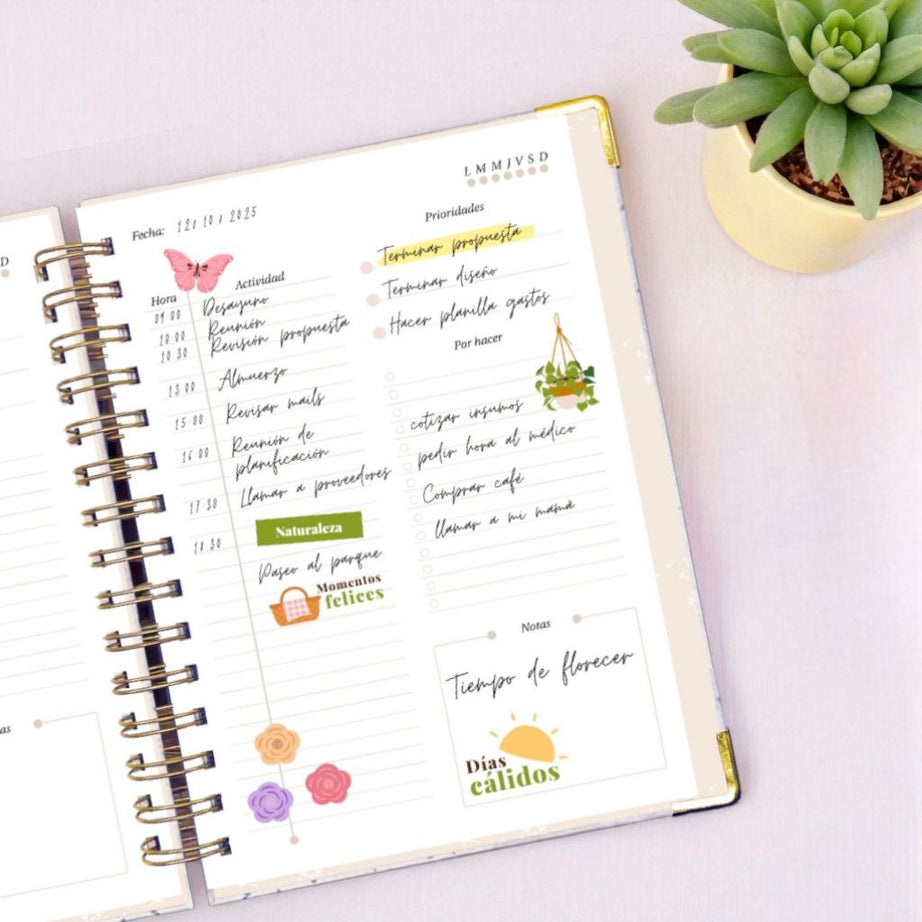 D
as
L M M J V S D
Fecha: 12/10/2025
Hora Actividad
09 00 Desayuno
10 00 Reunión
10 30 Revisión propuesta
13 00 Almuerzo
15 00 Revisar mails
16 00 Reunión de
planificación
17 30 Llamar a proveedores
Naturaleza
18 30 Paseo al parque
Momentos
felices
Prioridades
Terminar propuesta
Terminar diseño
Hacer planilla gastos
Por hacer
cotizar insumos
pedir hora al médico
Comprar café
llamar a mi mamá
Notas
Tiempo de florecer
Días
cálidos